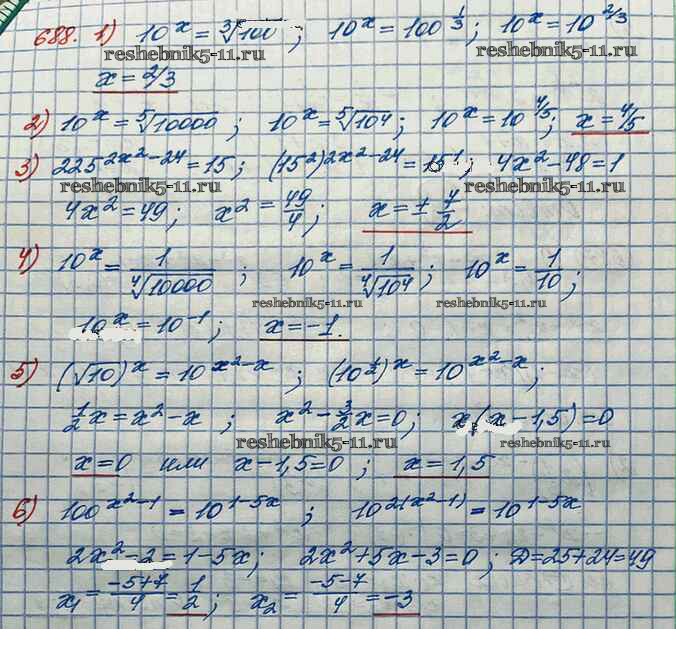 688. 1) 10^x = ∛100 ; 10^x = 100^(1/3) ; 10^x = 10^(2/3)
reshebnik5-11.ru reshebnik5-11.ru
x = 2/3
2) 10^x = ⁵√10000 ; 10^x = ⁵√10⁴ ; 10^x = 10^(4/5) ; x = 4/5
3) 225^(2x²-24) = 15 ; (15²)^(2x²-24) = 15¹ ; 4x² - 48 = 1
reshebnik5-11.ru reshebnik5-11.ru
4x² = 49 ; x² = 49/4 ; x = ± 7/2
4) 10^x = 1/⁴√10000 ; 10^x = 1/⁴√10⁴ ; 10^x = 1/10 ;
reshebnik5-11.ru reshebnik5-11.ru
10^x = 10^(-1) ; x = -1.
5) (√10)^x = 10^(x²-x) ; (10^(1/2))^x = 10^(x²-x) ;
1/2 x = x² - x ; x² - 3/2 x = 0 ; x(x - 1,5) = 0
reshebnik5-11.ru reshebnik5-11.ru
x = 0 или x - 1,5 = 0 ; x = 1,5
6) 100^(x²-1) = 10^(1-5x) ; 10^(2(x²-1)) = 10^(1-5x)
2x² - 2 = 1 - 5x ; 2x² + 5x - 3 = 0 ; D = 25 + 24 = 49
x₁ = (-5+7)/4 = 1/2 ; x₂ = (-5-7)/4 = -3